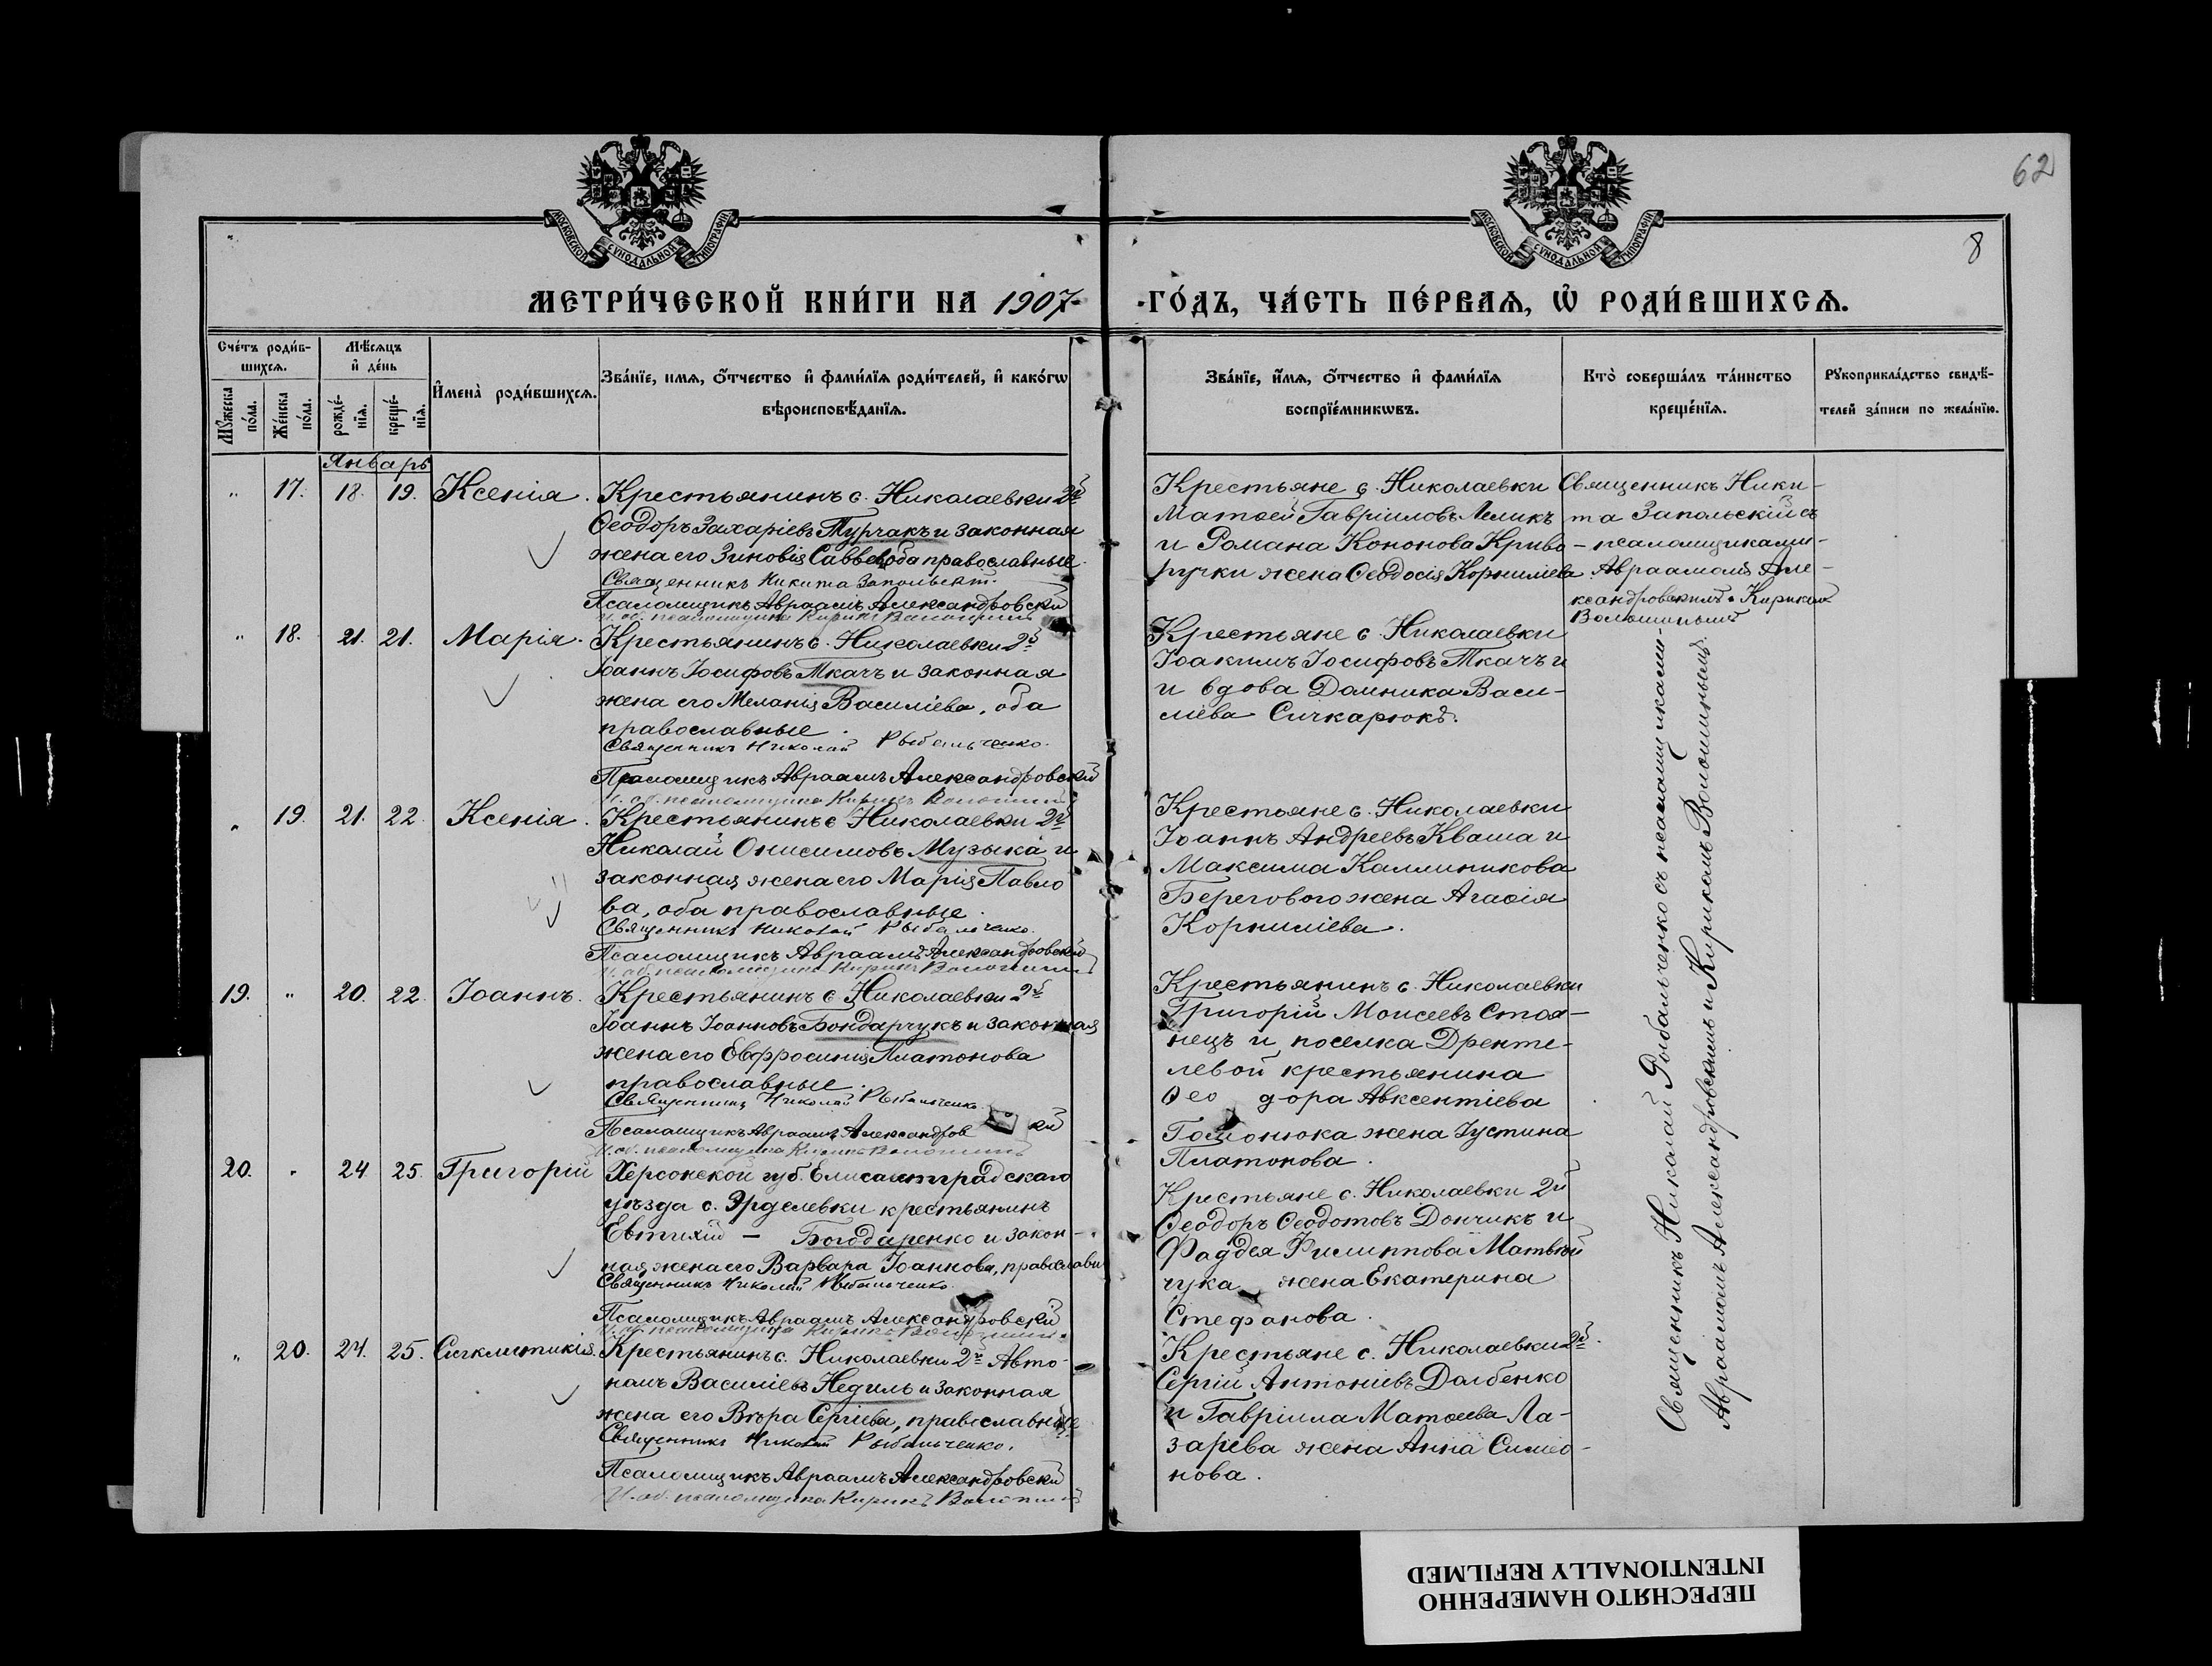 62
8
МОСКОВСКОЙ СѴНОДАЛЬНОЙ ТИПОГРАФІИ
МОСКОВСКОЙ СѴНОДАЛЬНОЙ ТИПОГРАФІИ
МЕТРИ́ЧЕСКОЙ КНИ́ГИ НА 1907
ГО́ДЪ, ЧА́СТЬ ПЕ́РВАѦ, Ѽ РОДИ́ВШИХСѦ.
Сче́тъ роди́в-
шихсѧ.
Мѣсѧцъ
и҆ де́нь
Мꙋжеска по́ла.
Же́нска по́ла.
рожде́-
нїѧ.
креще́-
нїѧ.
И҆мена̀ роди́вшихсѧ.
Зва́нїе, имѧ, ѻ҆́тчество и҆ фами́лїѧ роди́телей, и҆ како́гѡ
вѣроисповѣ́данїѧ.
Зва́нїе, и҆́мѧ, ѻ҆́тчество и҆ фами́лїѧ
воспрїе́мникѡвъ.
Кто̀ соверша́лъ та́инство
креще́нїѧ.
Рꙋкоприкла́дство свидѣ́-
телей за́писи по жела́нїю.
Январь
" 17. 18. 19. Ксенія.
Крестьянинъ с. Николаевки 2й
Ѳеодоръ Захаріевъ Турчакъ и законная
жена его Зиновія Саввова оба православные.
Священникъ Никита Запольскій.
Псаломщикъ Авраамъ Александровскій
И. об. псаломщика Кирикъ Волошинъ
Крестьяне с. Николаевки
Матѳей Гавріиловъ Лемикъ
и Романа Кононова Криво-
ручки жена Ѳеодосія Корниліева
Священникъ Ники-
та Запольскій съ
псаломщиками
Авраамомъ Але-
ксандровскимъ и Кирикомъ
Волошинымъ
" 18. 21. 21. Марія.
Крестьянинъ с. Николаевки 2й
Іоаннъ Іосифовъ Ткачъ и законная
жена его Меланія Василіева, оба
православные.
Священникъ Николай Рыбальченко.
Псаломщикъ Авраамъ Александровскій
И. об. псаломщика Кирикъ Волошинъ
Крестьяне с. Николаевки
Іоакимъ Іосифовъ Ткачъ и
и вдова Домника Васи-
ліева Сичкарюкъ.
" 19. 21. 22. Ксенія.
Крестьянинъ с. Николаевки 2й
Николай Онисимовъ Музыка и
законная жена его Марія Павло
ва, оба православные.
Священникъ Николай Рыбальченко.
Псаломщикъ Авраамъ Александровскій
И. об. псаломщика Кирикъ Волошинъ
Крестьяне с. Николаевки
Іоаннъ Андреевъ Кваша и
Максима Каллиникова
Берегового жена Агаѳія
Корниліева.
19. " 20. 22. Іоаннъ.
Крестьянинъ с. Николаевки 2й
Іоаннъ Іоанновъ Бондарчукъ и законная
жена его Евфросинія Платонова
православные.
Священникъ Николай Рыбальченко
Псаломщикъ Авраамъ Александров кій
И. об. псаломщика Кирикъ Волошинъ
Крестьянинъ с. Николаевки
Григорій Моисеевъ Стоя-
нецъ и поселка Дренте-
левой крестьянина
Ѳео дора Авксентіева
Гомонюка жена Іустина
Платонова.
20. " 24 25. Григорій
Херсонской губ. Елисаветградскаго
уѣзда с. Эрделевки крестьянинъ
Евтихій - Богодаренко и закон-
ная жена его Варвара Іоаннова, православн
Священникъ Николай Рыбальченко
Псаломщикъ Авраамъ Александровскій
И. об. псаломщика Кирикъ Волошинъ
Крестьяне с. Николаевки 2й
Ѳеодоръ Ѳеодотовъ Дончикъ и
Фаддея Филиппова Матвѣй
чука жена Екатерина
Стефанова.
" 20. 24. 25. Сигклитикія.
Крестьянинъ с. Николаевки 2й Авто-
номъ Василіевъ Недиль и законная
жена его Вѣра Сергіева, православные
Священникъ Николай Рыбальченко.
Псаломщикъ Авраамъ Александровскій
И. об. псаломщика Кирикъ Волошинъ
Крестьяне с. Николаевки 2й
Сергій Антоніевъ Долбенко
и Гавріила Матѳеева Ла-
зарева жена Анна Симео-
нова.
Священникъ Николай Рыбальченко съ псаломщиками
Авраамомъ Александровскимъ и Кирикомъ Волошинымъ.
ПЕРЕСНЯТО НАМЕРЕННО
INTENTIONALLY REFILMED